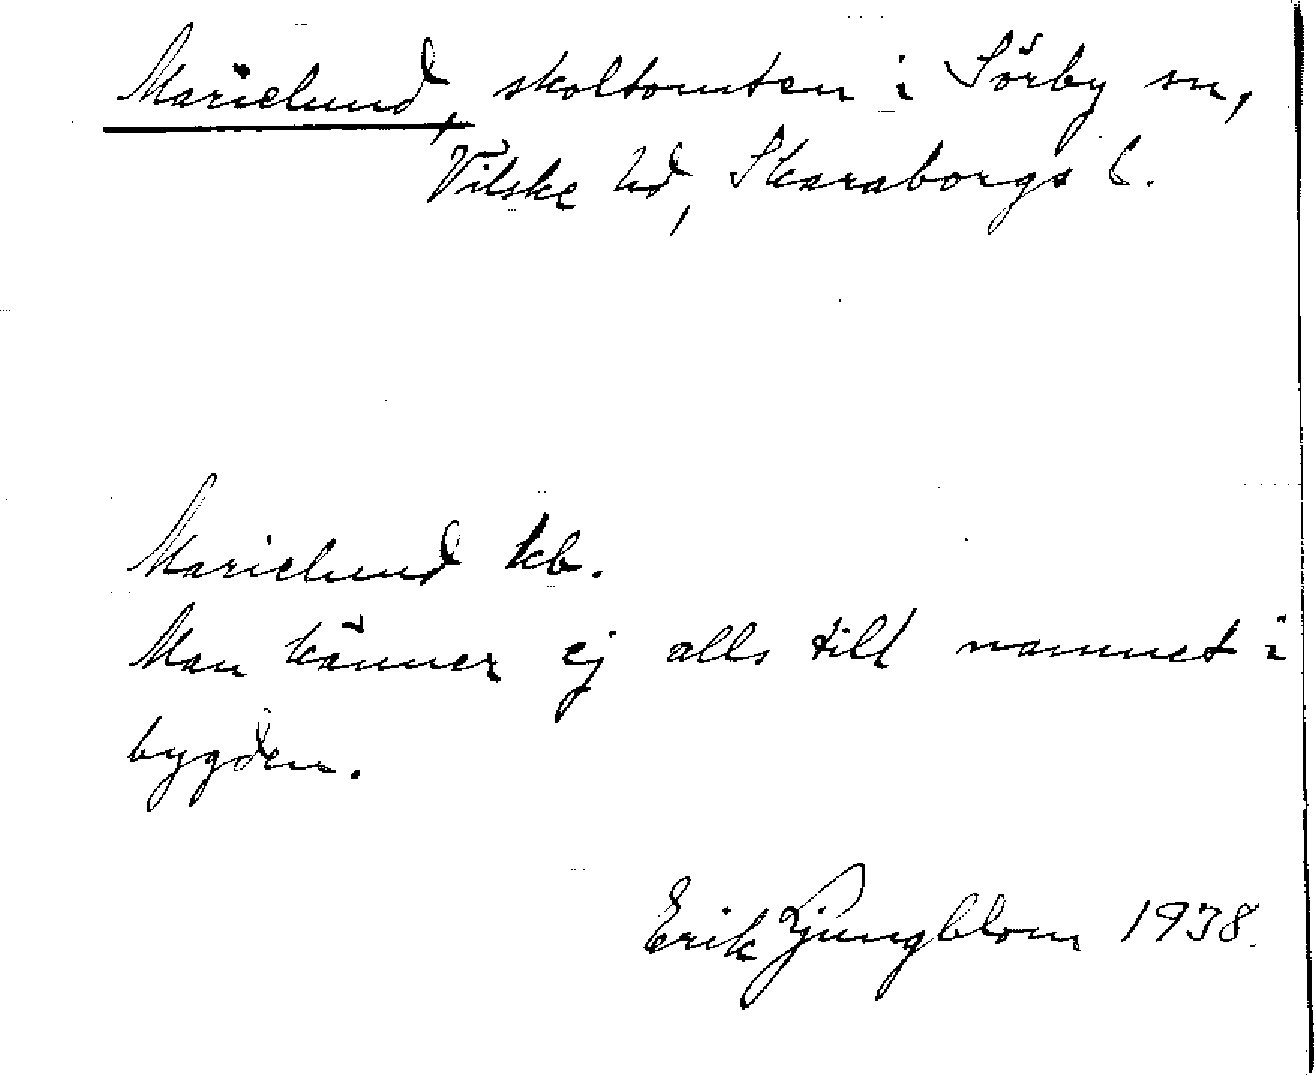 Marielund, skoltomten i Sörby sn,
Vilske hd, Skaraborgs l.
Marielund kb.
Man känner ej alls till namnet i
bygden.
Erik Ljungblom 1938.